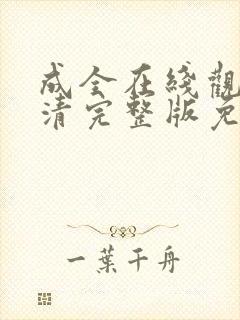 成全在綫觀
清完整版免
一葉千舟